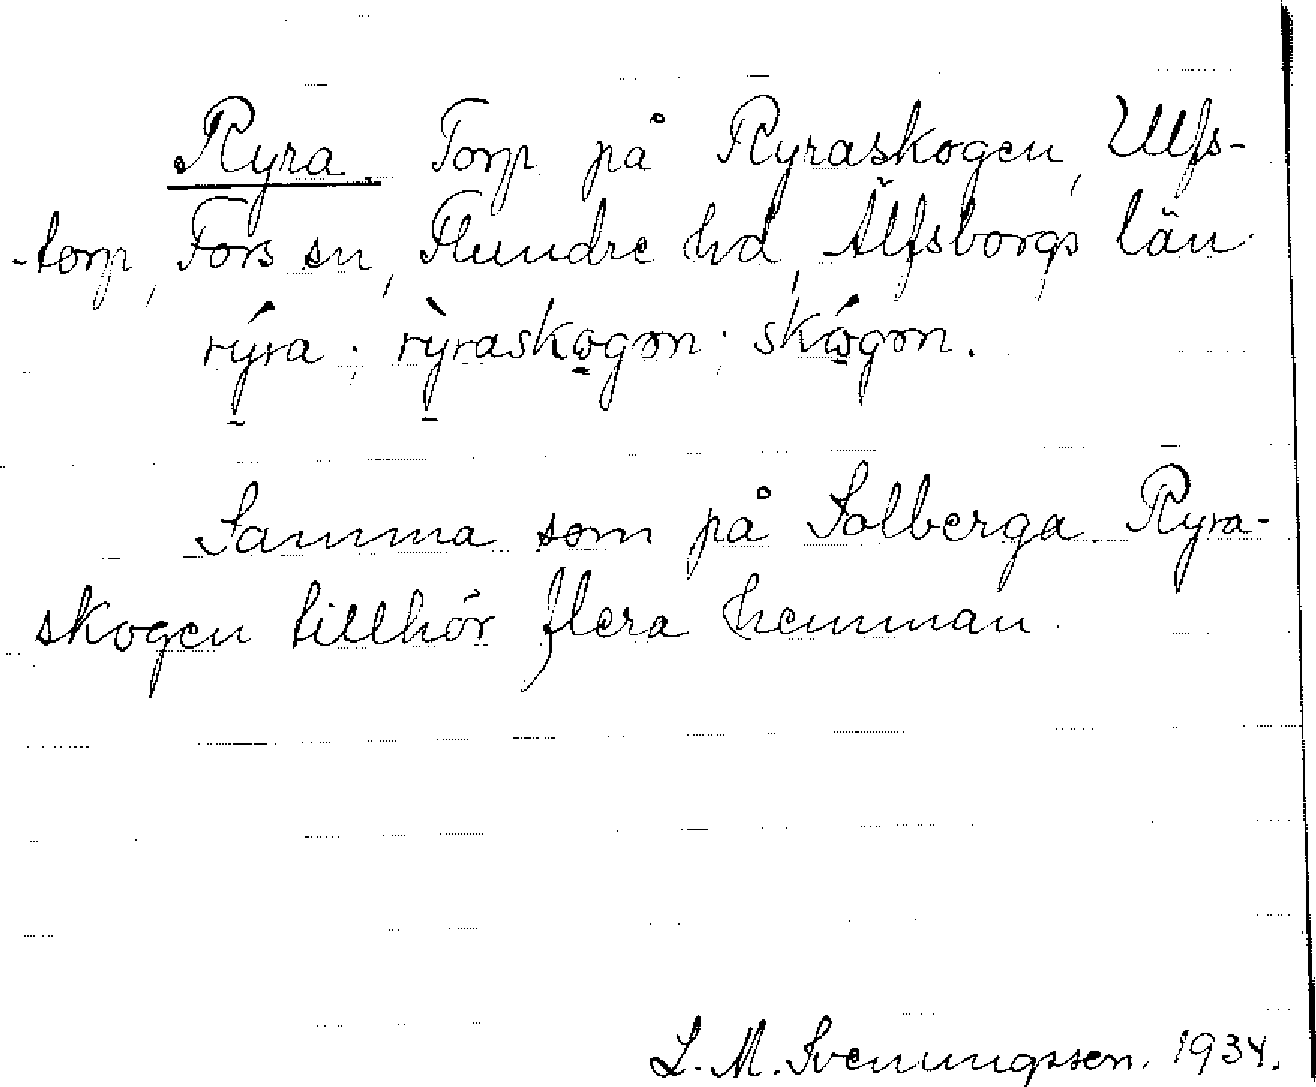 Ryra. Torp på Ryraskogen, Ulfs-
-torp, Fors sn, Flundre hd, Älfsborgs län.
rýra; rỳraskogon; skógon.
Samma som på Solberga. Ryra-
skogen tillhör flera hemman.
L. M. Svenungsson. 1934.